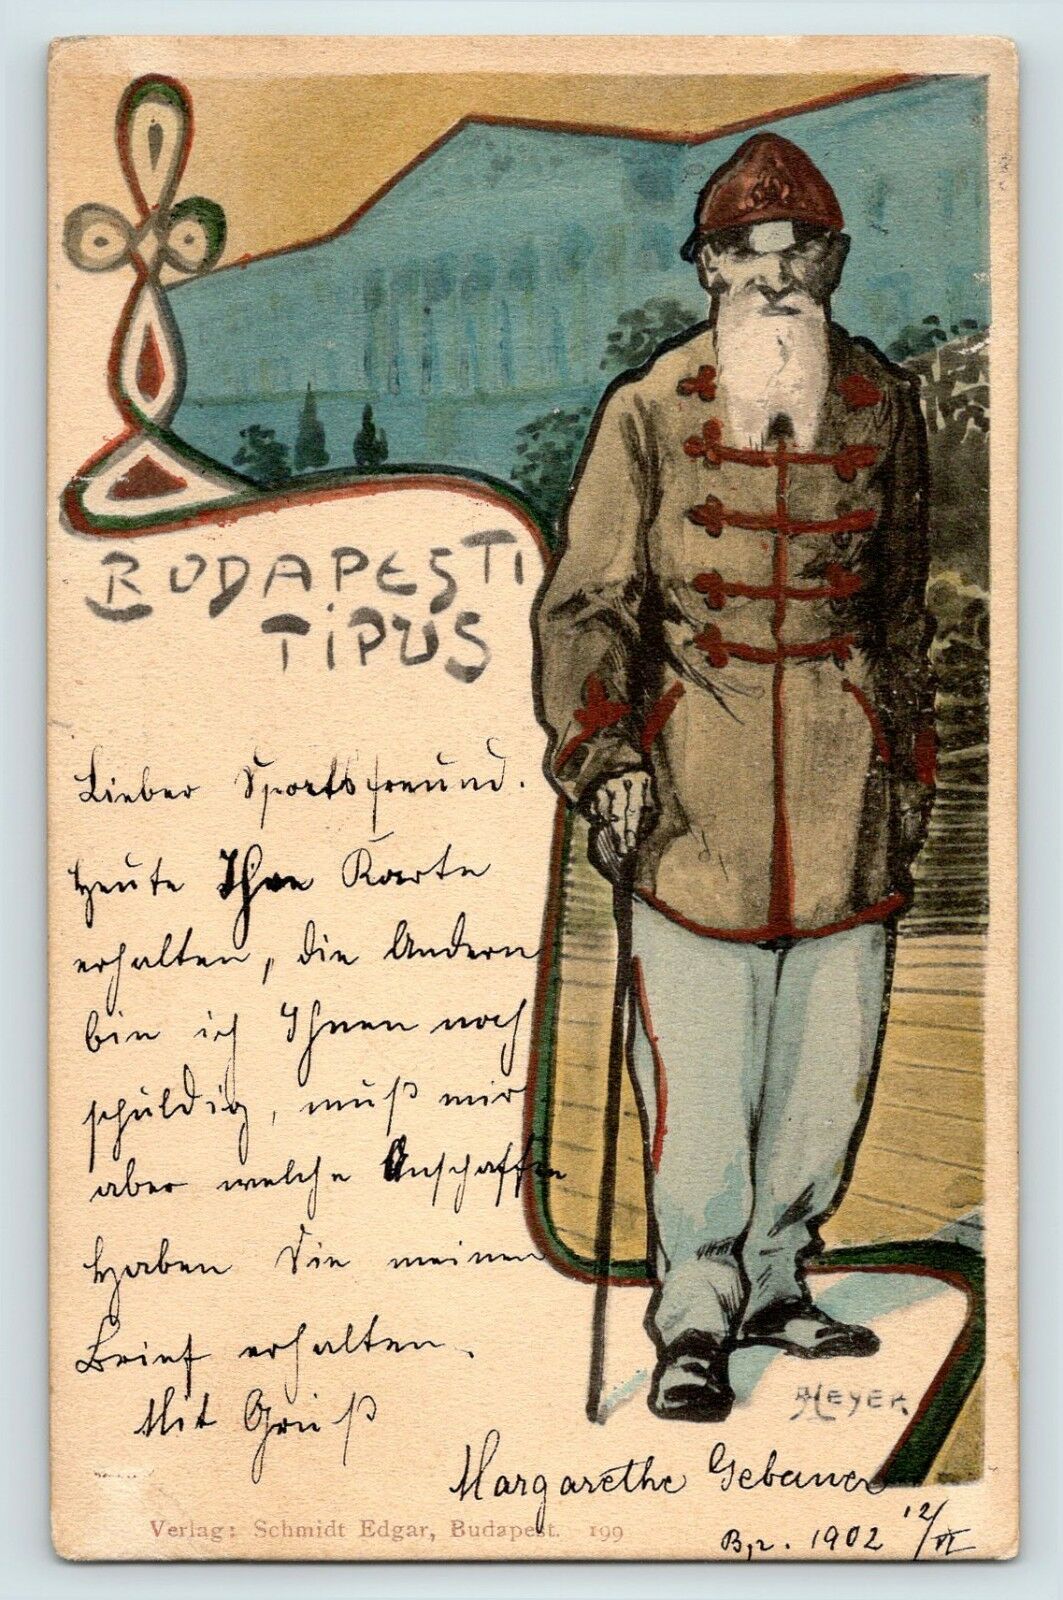 BUDAPESTI
TIPUS
Lieber Sportsfreund.
Heute Ihre Karte
erhalten, die Andern
bin ich Ihnen noch
schuldig, muß mir
aber welche Anschaffen
Haben Sie meinen
Brief erhalten.
Mit Gruß
MEYER
Margarethe Gebauer
Verlag: Schmidt Edgar, Budapest. 199
1902 12/VI